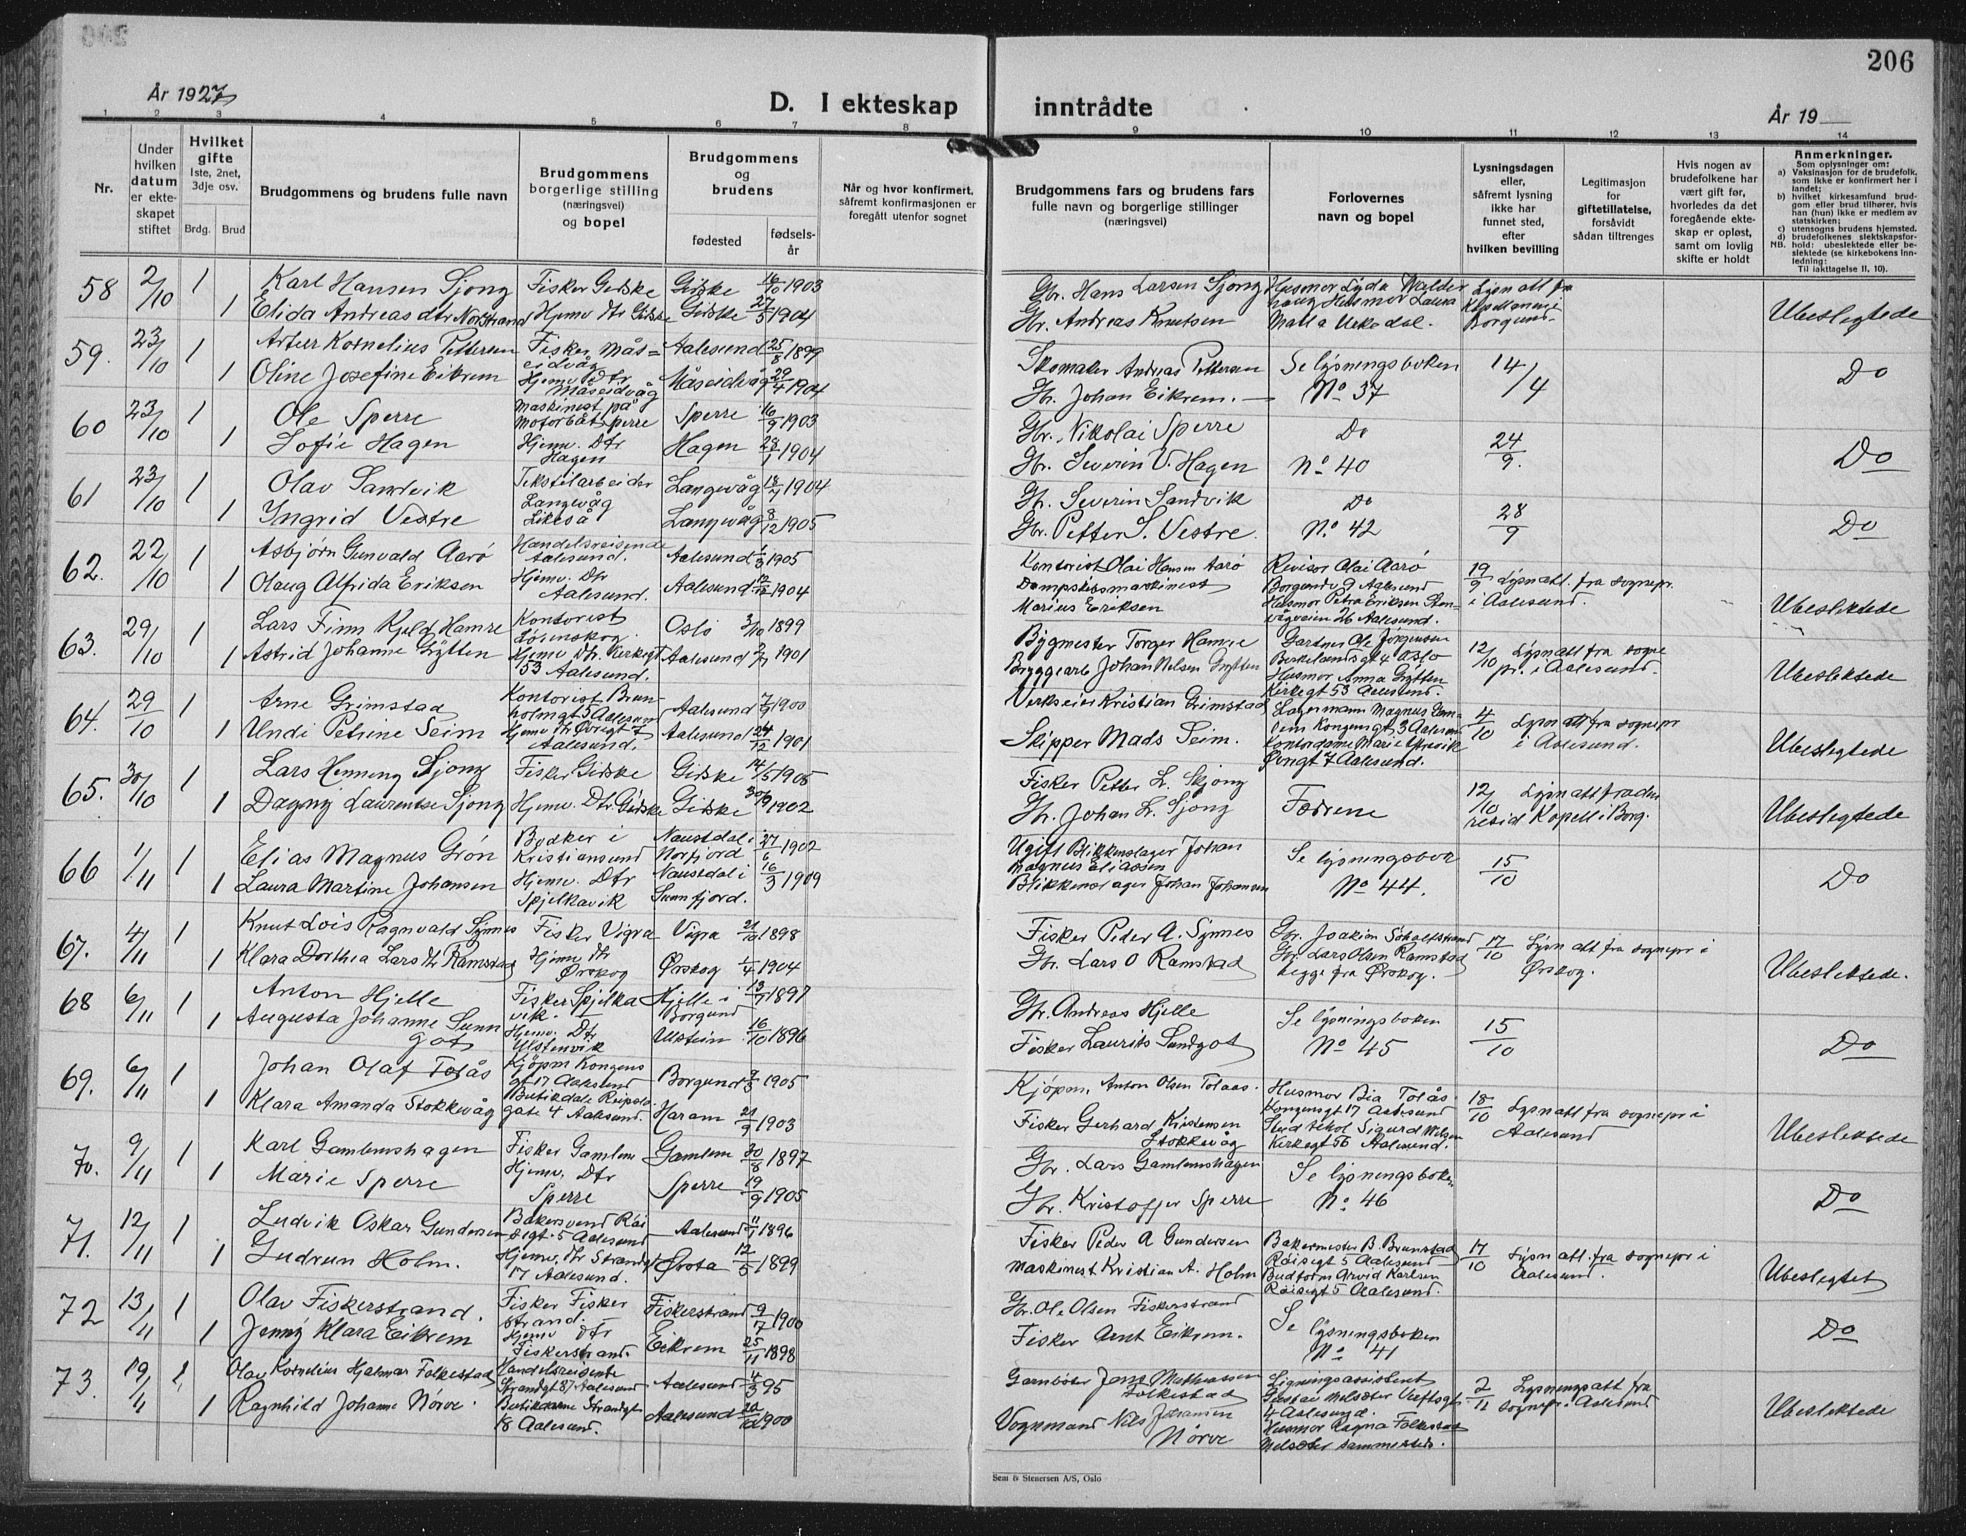 206
År 1927
D. I ekteskap inntrådte
År 19
1 2 3 4 5 6 7 8 9 10 11 12 13 14
Nr.
Under hvilken datum er ekteskapet stiftet
Hvilket gifte
1ste, 2net, 3dje osv.
Brdg. Brud
Brudgommens og brudens fulle navn
Brudgommens borgerlige stilling (næringsvei) og bopel
Brudgommens og brudens
fødested
fødselsår
Når og hvor konfirmert, såfremt konfirmasjonen er foregått utenfor sognet
Brudgommens fars og brudens fars fulle navn og borgerlige stillinger (næringsvei)
Forlovernes navn og bopel
Lysningsdagen eller, såfremt lysning ikke har funnet sted, efter hvilken bevilling
Legitimasjon for giftetillatelse, forsåvidt sådan tiltrenges
Hvis nogen av brudefolkene har vært gift før, hvorledes da det foregående ekteskap er opløst, samt om lovlig skifte er holdt
Anmerkninger.
Som oplysninger om:
a) Vaksinasjon for de brudefolk, som ikke er konfirmert her i landet;
b) hvilket kirkesamfund brudgom eller brud tilhører, hvis han (hun) ikke er medlem av statskirken;
c) utensogns brudens hjemsted.
d) brudefolkenes slektskapsforhold: ubeslektede eller beslektede (se kirkebokens innledning:
NB.
Til iakttagelse II, 10).
58 2/10 1 Karl Hansen Sjong Fisker Gidske Gidske 1903 Gbr. Hans Larsen Sjong Husmor Lyda Walderhaug Husmor Laura Lysn att fra
1 Elida Andreasdtr Norstrand Hjemv dtr Gidske Gidske 27/5 1904 Gbr. Andreas Knutsen Borgund. Ubeslegtede
59. 23/10 1 Artur Kornelius Pettersen Fisker Måseidvåg Aalesund 25/8 1899 Skomaker Andreas Pettersen Se lysningsboken 14/4
1 Oline Josefine Eikrem Hjemv Dtr Måseidvåg Måseidvåg 29/4 1904 Gbr. Johan Eikrem. No 37 Do
60 23/10 1 Ole Sperre Maskinest på Motorbåt Sperre Sperre 16/9 1903 Gbr. Nikolai Sperre Do 24/9.
1 Sofie Hagen Hjemv. Dtr Hagen Hagen 28/1 1904 Gbr. Severin V. Hagen No 40 Do
61 23/10 1 Olav Sandvik Tekstilarbeider Langevåg Langevåg 1904 Gbr. Severin Sandvik Do 28/9
1 Ingrid Vestre Likeså Langevåg 8/12 1905 Gbr. Petter S. Vestre. No. 42 Do
62. 22/10 1 Asbjørn Gunvald Aarø Handelsreisende Aalesund. Aalesund 1/3 1905 Kontorist Olai Hansen Aarø Revisor Olai Aarø Borgundv 9 Aalesund 19/9 Lysn att. fra sognepr. i Aalesund.
1 Olaug Alfrida Eriksen Hjemv. Dtr Aalesund. Aalesund 1904 Dampskibsmaskinest Marius Eriksen Husmor Petra Eriksen Stenvågveien 26 Aalesund. Ubeslektede
63. 29/10 1 Lars Finn Kjeld Hamre Kontorist Lørenskog. Oslo 3/10 1899 Bygmester Torger Hamre Gartner Ole Jørgensen Birkelandsgt 4 Oslo 12/10 Lysn att fra sognepr. i Aalesund.
1 Astrid Johanne Lytten Hjemv Dtr. Kirkegt 53 Aalesund. Aalesund 1901 Bryggearb Johan Nilsen Lytten Husmor Anna Lytten Kirkegt 53 Aalesund. Ubeslektede
64. 29/10 1 Arne Grimstad Kontorist Brunholmgt 5 Aalesund Aalesund 1900 Verkseier Kristian Grimstad Kongensgt 3 Aalesund 4/10 Lysn att fra sognepr i Aalesund.
1 Undi Petrine Seim Hjemv Dtr Øvregt 7 Aalesund. Aalesund 24/12 1901 Skipper Mads Seim. Kontordame Marie Øvregt 7 Aalesund. Ubeslegtede
65. 30/10 1 Lars Henning Sjong Fisker Gidske Gidske 14/5 1905 Fisker Petter L. Skjong Fædrene 12/10 Lysn att fra den resid Kapell i Borg.
1 Dagny Laurentse Sjong Hjemv. Dtr. Gidske Gidske 30/9 1902 Gbr. Johan L. Sjong Ubeslegtede
66 1/11 1 Elias Magnus Grøn Bødker i Kristiansund Naustdal i Norfjord 27/6 1902 Ugift Blikkenslager Johan Magnus Eliassen Se lysningsbok 15/10
1 Laura Martine Johansen Hjemv. Dtr Spjelkavik Naustdal i Sunnfjord. 16/3 1909 Blikkenslager Johan Johansen No 44. Do
67. 4/11 1 Knut Lois Ragnvald Synnes Fisker Vigra Vigra 21/10 1898 Fisker Peder A. Synnes Gbr. Joakim Scholtstrand 17/10 Lysn att fra sognepr i Ørskog.
1 Klara Dorthea Larsdtr Ramstad Hjemv dtr Ørskog Ørskog 1/4 1904 Gbr. Lars O Ramstad Gbr. Lars Olsen Ramstad begge fra Ørskog. Ubeslektede.
68 6/11 1 Anton Hjelle Fisker Spjelkavik. Hjelle i Borgund 1897 Gbr. Andreas Hjelle Se lysningsboken 15/10
1 Augusta Johanne Sunngot Hjemv. Dtr Ulstenvik Ulstein 16/10 1896 Fisker Laurits Sundgot No 45 Do
69. 6/11 1 Johan Olaf Tolås Kjøpm Kongensgt 17 Aalesund Borgund 1905 Kjøpm. Anton Olsen Tolaas. Husmor Bia Tolås. Kongensgt 17 Aalesund 18/10 Lysn att fra sognepr i Aalesund
1 Klara Amanda Stokkevåg gate 4 Aalesund. Haram 21/9 1903 Fisker Gerhard Kristensen Stokkevåg Kirkegt 56 Aalesund. Ubeslektede
70. 9/11 1 Karl Gamlemshagen Fisker Gamlem Gamlem 30/8 1897 Gbr. Lars Gamlemshagen Se lysningsboken
1 Marie Sperre Hjemv. Dtr Sperre Sperre 19/9 1905 Gbr. Kristoffer Sperre No. 46 Do
71. 12/11 1 Ludvik Oskar Gundersen Bakersvend Røisegt. 5 Aalesund Aalesund 1896 Fisker Peder A Gundersen Bakermester B. Brunstad Røisegt 5 Aalesund 17/10 Lysn att. fra sognepr i Aalesund.
1 Gudrun Holm. Hjemv. dtr Strandgt 17 Aalesund. Ørsta 12/5 1899 Maskinest Kristian A. Holm Arvid Karlsen Røisegt 5 Aalesund. Ubeslegtet
72 13/11 1 Olav Fiskerstrand. Fisker Fiskerstrand. Fiskerstrand 9/7 1900 Gbr. Ole Olsen Fiskerstrand Se lysningsboken
1 Jenny Klara Eikrem Hjemv dtr Fiskerstrand. Eikrem 25/11 1898 Fisker Arnt Eikrem. No 41 Do
73. 19/11 1 Olav Kornelius Hjalmar Folkestad Handelsreisende Strandgt 87 Aalesund Aalesund 4/3 95 Garnbøter Jens Mathiassen Folkestad Ligningsassistent 4 Aalesund. 2/11 Lysningsatt fra sognepr i Aalesund
1 Ragnhild Johanne Nørve. Butikdame Strandgt 18 Aalesund. Aalesund 1900 Vognmand Nils Johansen Nørve Husmor Ragna Folkestad Melsæter sammesteds. Ubeslektede
Sem & Stenersen A/S, Oslo